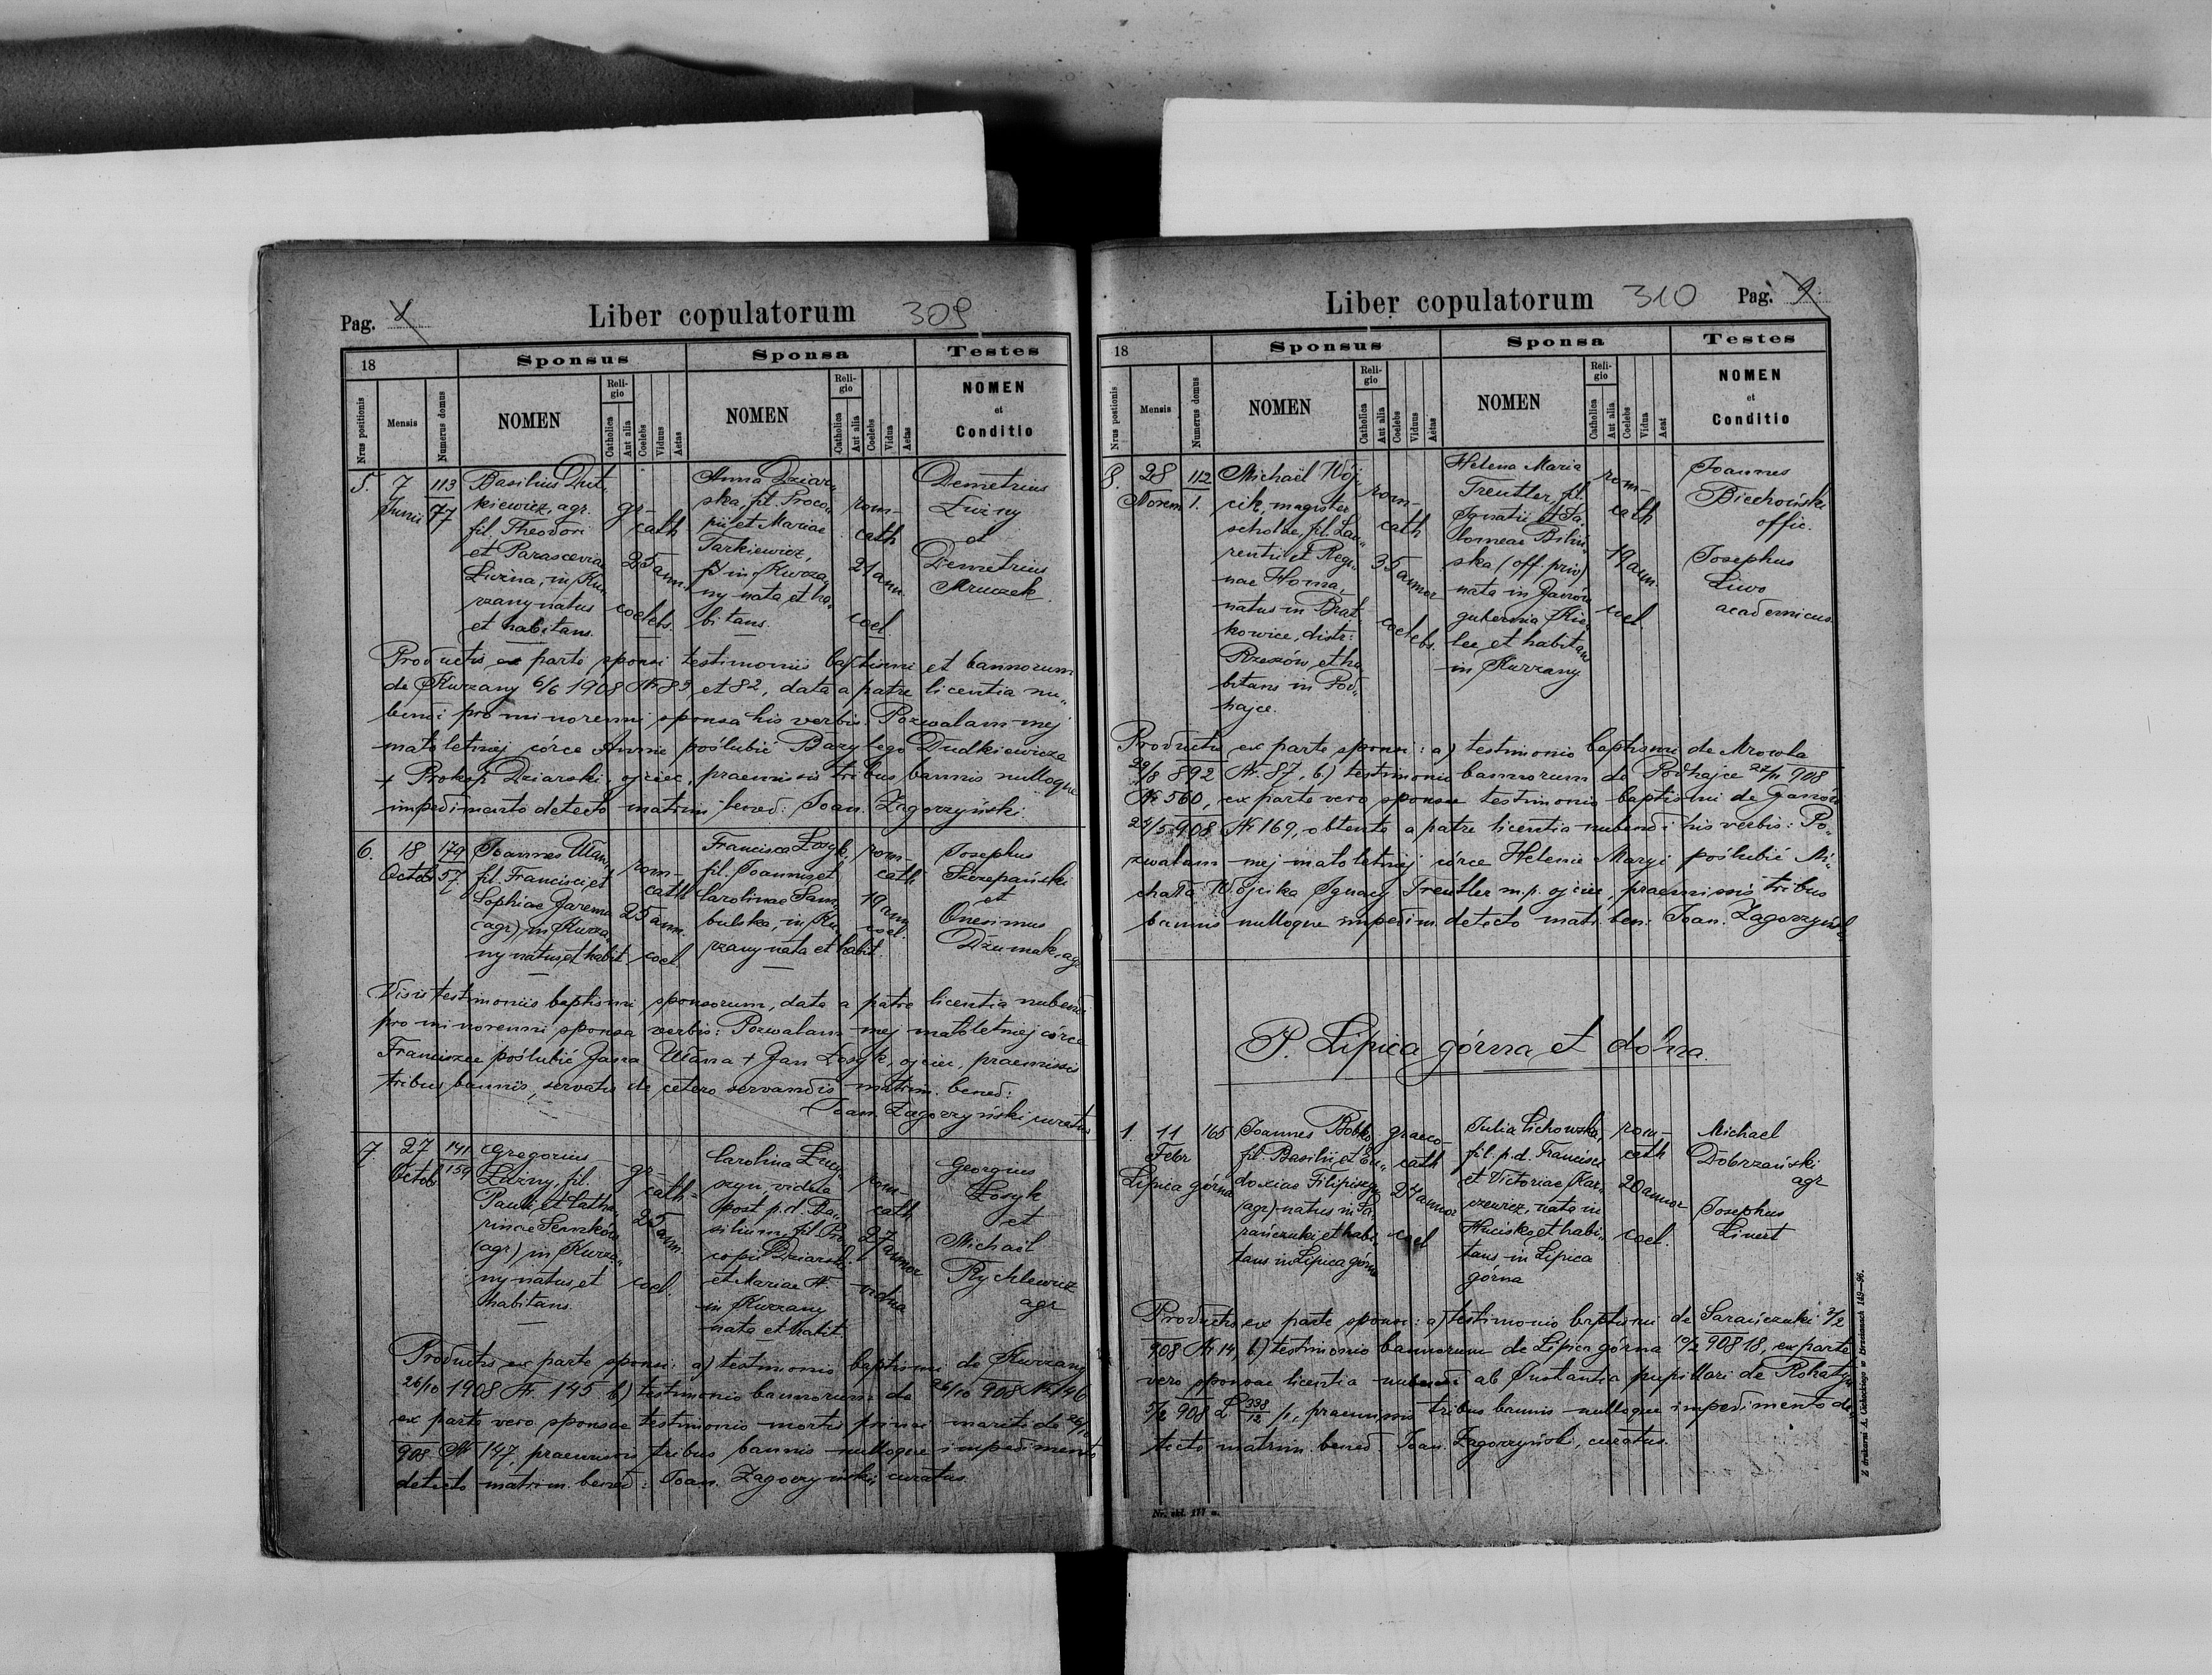 Pag.
Liber copulatorum 309
18
Sponsus
Sponsa
Testes
Nrus positionis
Mensis
Numerus domus
NOMEN
Religio
Catholica
Aut alia
Coelebs
Viduus
Aetas
NOMEN
Religio
Catholica
Aut alia
Coelebs
Vidua
Aetas
NOMEN
et
Conditio
5.
7
Junii
113
77
Basilius Dut
kiewicz, agr.
fil. Theodori
et Parascevia
Luzina, in Ku
rzany natus
et habitans.
gr-
cath
25 ann.
coelebs.
Anna Dziar
ska, fil. Proco
pii et Mariae
Tarkiewicz,
in Kurza
ny nata et ha
bitans.
rom-
cath
21 ann.
coel.
Demetrius
Luzny
et
Demetrius
Mruczek.
Productis ex parte sponsi testimoniis baptismi et bannorum
de Kurzany 6/6 1908 Nr 83 et 82, data a patre licentia nu„
bendi pro minorenni sponsa his verbis: Pozwalam mej
małoletniej córce Annie poślubić Bazylego Dudkiewicza
+ Prokop Dziarski, ojciec, praemissis tribus bannis nulloque
impedimento detecto matrim bened: Joan. Zagorzyński.
6.
18
Octob
179
57
Joannes Ułan,
fil. Francisci et
Sophiae Jarema
(agr) in Kurza
ny natus et habit
rom-
cath
25 ann.
coel.
Francisca Łosyk,
fil. Joannis et
Carolinae Sam
bulska, in Ku
rzany nata et habit.
rom-
cath
19 ann
coel.
Josephus
Szczepański
et
Onesimus
Dzumak, agr
Visis testimoniis baptismi sponsorum, data a patre licentia nubendi
pro minorenni sponsa verbis: Pozwalam mej małoletniej córce
Franciszce poślubić Jana Ułana + Jan Łosyk, ojciec, praemissis
tribus bannis, servatis de cetero servandis matrim. bened:
Joan. Zagorzyński curatus
7
27
Octob
141
159
Gregorius
Luzny, fil.
Pauli et Catha
rinae Senków
(agr) in Kurza„
ny natus et
habitans.
gr-
cath-
25 ann.
coel.
Carolina Lucy
szyn, vidua
post p.d. Ba
silium, fil. Pro
copii Dziarski
et Mariae N.
in Kurzany
nata et habit.
rom-
cath
27 annor
vidua
Georgius
Łosyk
et
Michaël
Rychlewicz
agr
Productis ex parte sponsi: a) testimonio baptismi de Kurzany
26/10 1908 Nr. 145 b) testimonio bannorum de 26/10 908 Nr 146
ex parte vero sponsae testimonio mortis primi mariti de 26/10
908 Nr 147, praemissis tribus bannis nulloque impedimento
detecto matrim. bened: Joan. Zagorzyński, curatus.
Liber copulatorum 310
Pag. 9
18
Sponsus
Sponsa
Testes
Nrus postionis
Mensis
Numerus domus
NOMEN
Religio
Catholica
Aut alia
Coelebs
Viduus
Aetas
NOMEN
Religio
Catholica
Aut alia
Coelebs
Vidua
Aeat
NOMEN
et
Conditio
8.
28
Novem
112
1.
Michaël Wój„
cik, magister
scholae, fil. Lau„
rentii et Regi„
nae Homa,
natus in Brat
kowice, distr:
Rzeszów, et ha
bitans in Pod„
hajce.
rom-
cath
35 annor
coelebs.
Helena Maria
Treutler, fil.
Ignatii et Sa„
lomeae Biliń
ska (off. priv)
nata in Janów
gubernia Kie„
lce et habitans
in Kurzany
rom-
cath
19 ann.
coel.
Joannes
Biechoński
offic.
Josephus
Liwo
academicus
Productis ex parte sponsi: a) testimonio baptismi de Mrowla
29/8 892 Nr. 87, b) testimonio bannorum de Podhajce 27/11 908
Nr 560, ex parte vero sponsae testimonio baptismi de Janów
24/5 908 Nr 169, obtenta a patre licentia nubendi his verbis: Po„
zwalam mej małoletniej córce Helenie Maryi poślubić Mi„
chała Wójcika Ignacy Treutler m.p. ojciec, praemissis tribus
bannis nulloque impedim. detecto matr. ben. Joan. Zagorzyński
P. Lipica górna et dolna.
1.
11
Febr
Lipica górna
165
Joannes Bobko
fil. Basilii et Eu„
doxiae Filipiszyn
(agr) natus in Sa
rańczuki et habi„
tans in Lipica górna
graeco-
cath
24 annor
coel
Julia Lichowska,
fil. p.d. Francisci
et Victoriae Kar„
czewicz, nata in
Huciska et habi„
tans in Lipica
górna
rom-
cath
20 annor
coel.
Michael
Dobrzański
agr
Josephus
Linert
Productis ex parte sponsi: a) testimonio baptismi de Sarańczuki 3/2
908 Nr 14, b) testimonio bannorum de Lipica górna 10/2 908 18, ex parte
vero sponsae licentia nubendi ab Instantia pupillari de Rohatyn
5/2 908 L 338/12 p, praemissis tribus bannis nulloque impedimento de
tecto matrim. bened. Joan. Zagorzyński, curatus.
Nr. skl. 177 a.
Z drukarni A. Cichockiego w Brzeżanach 149—96.